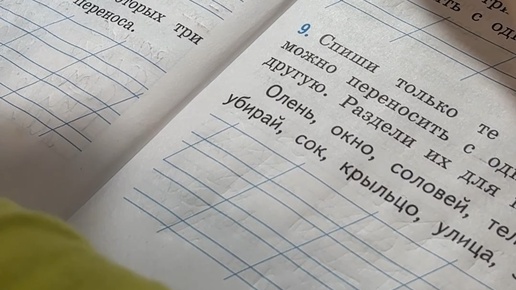 которых три
переноса.
9. Спиши только те
можно переносить с од
другую. Раздели их для
Олень, окно, соловей, тел
убирай, сок, крыльцо, улица,